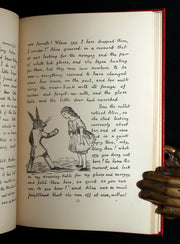 are ferrets! Where can I have dropped them,
I wonder?" Alice guessed in a moment that
it was looking for the nosegay and the pair
of white kid gloves, and she began hunting
for them, but they were now nowhere to be
seen — everything seemed to have changed
since her swim in the pool, and her walk
along the river-bank with its fringe of
rushes and forget-me-nots, and the glass
table and the little door had vanished.
Soon the rabbit
noticed Alice, as
she stood looking
curiously about
her, and at once
said in a quick
angry tone, "why,
Mary Ann! what
are you doing out
here? Go home this
moment, and look
on my dressing-table for my gloves and nosegay,
and fetch them here, as quick as you can
run, do you hear?" and Alice was so much
frightened that she ran off at once, without